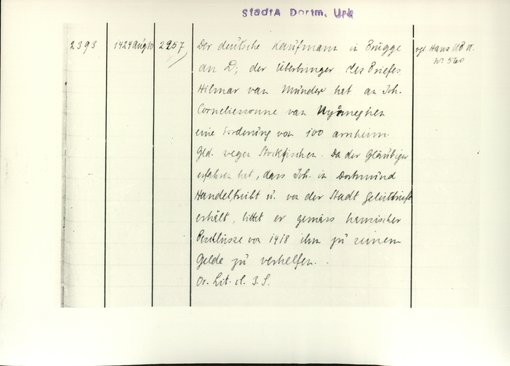 StadtA Dortm. Urk
2393 1424 Aug 10 2257 Der deutsche Kaufmann in Brügge vgl. Hans. UB VI.
an D., der Überbringer des Briefes No 560
Hilmar van Münder hat an Joh.
Corneliessonne van Nymeghen
eine Forderung von 100 arnheim
Gld. wegen Stockfischen. Da der Gläubiger
erfahren hat, dass Joh. in Dortmund
Handel treibt u. von der Stadt Geleitbriefe
erhält, bittet er gemäss hansischer
Beschlüsse von 1418 ihm zu seinem
Gelde zu verhelfen.
Or. Lit. cl. S.